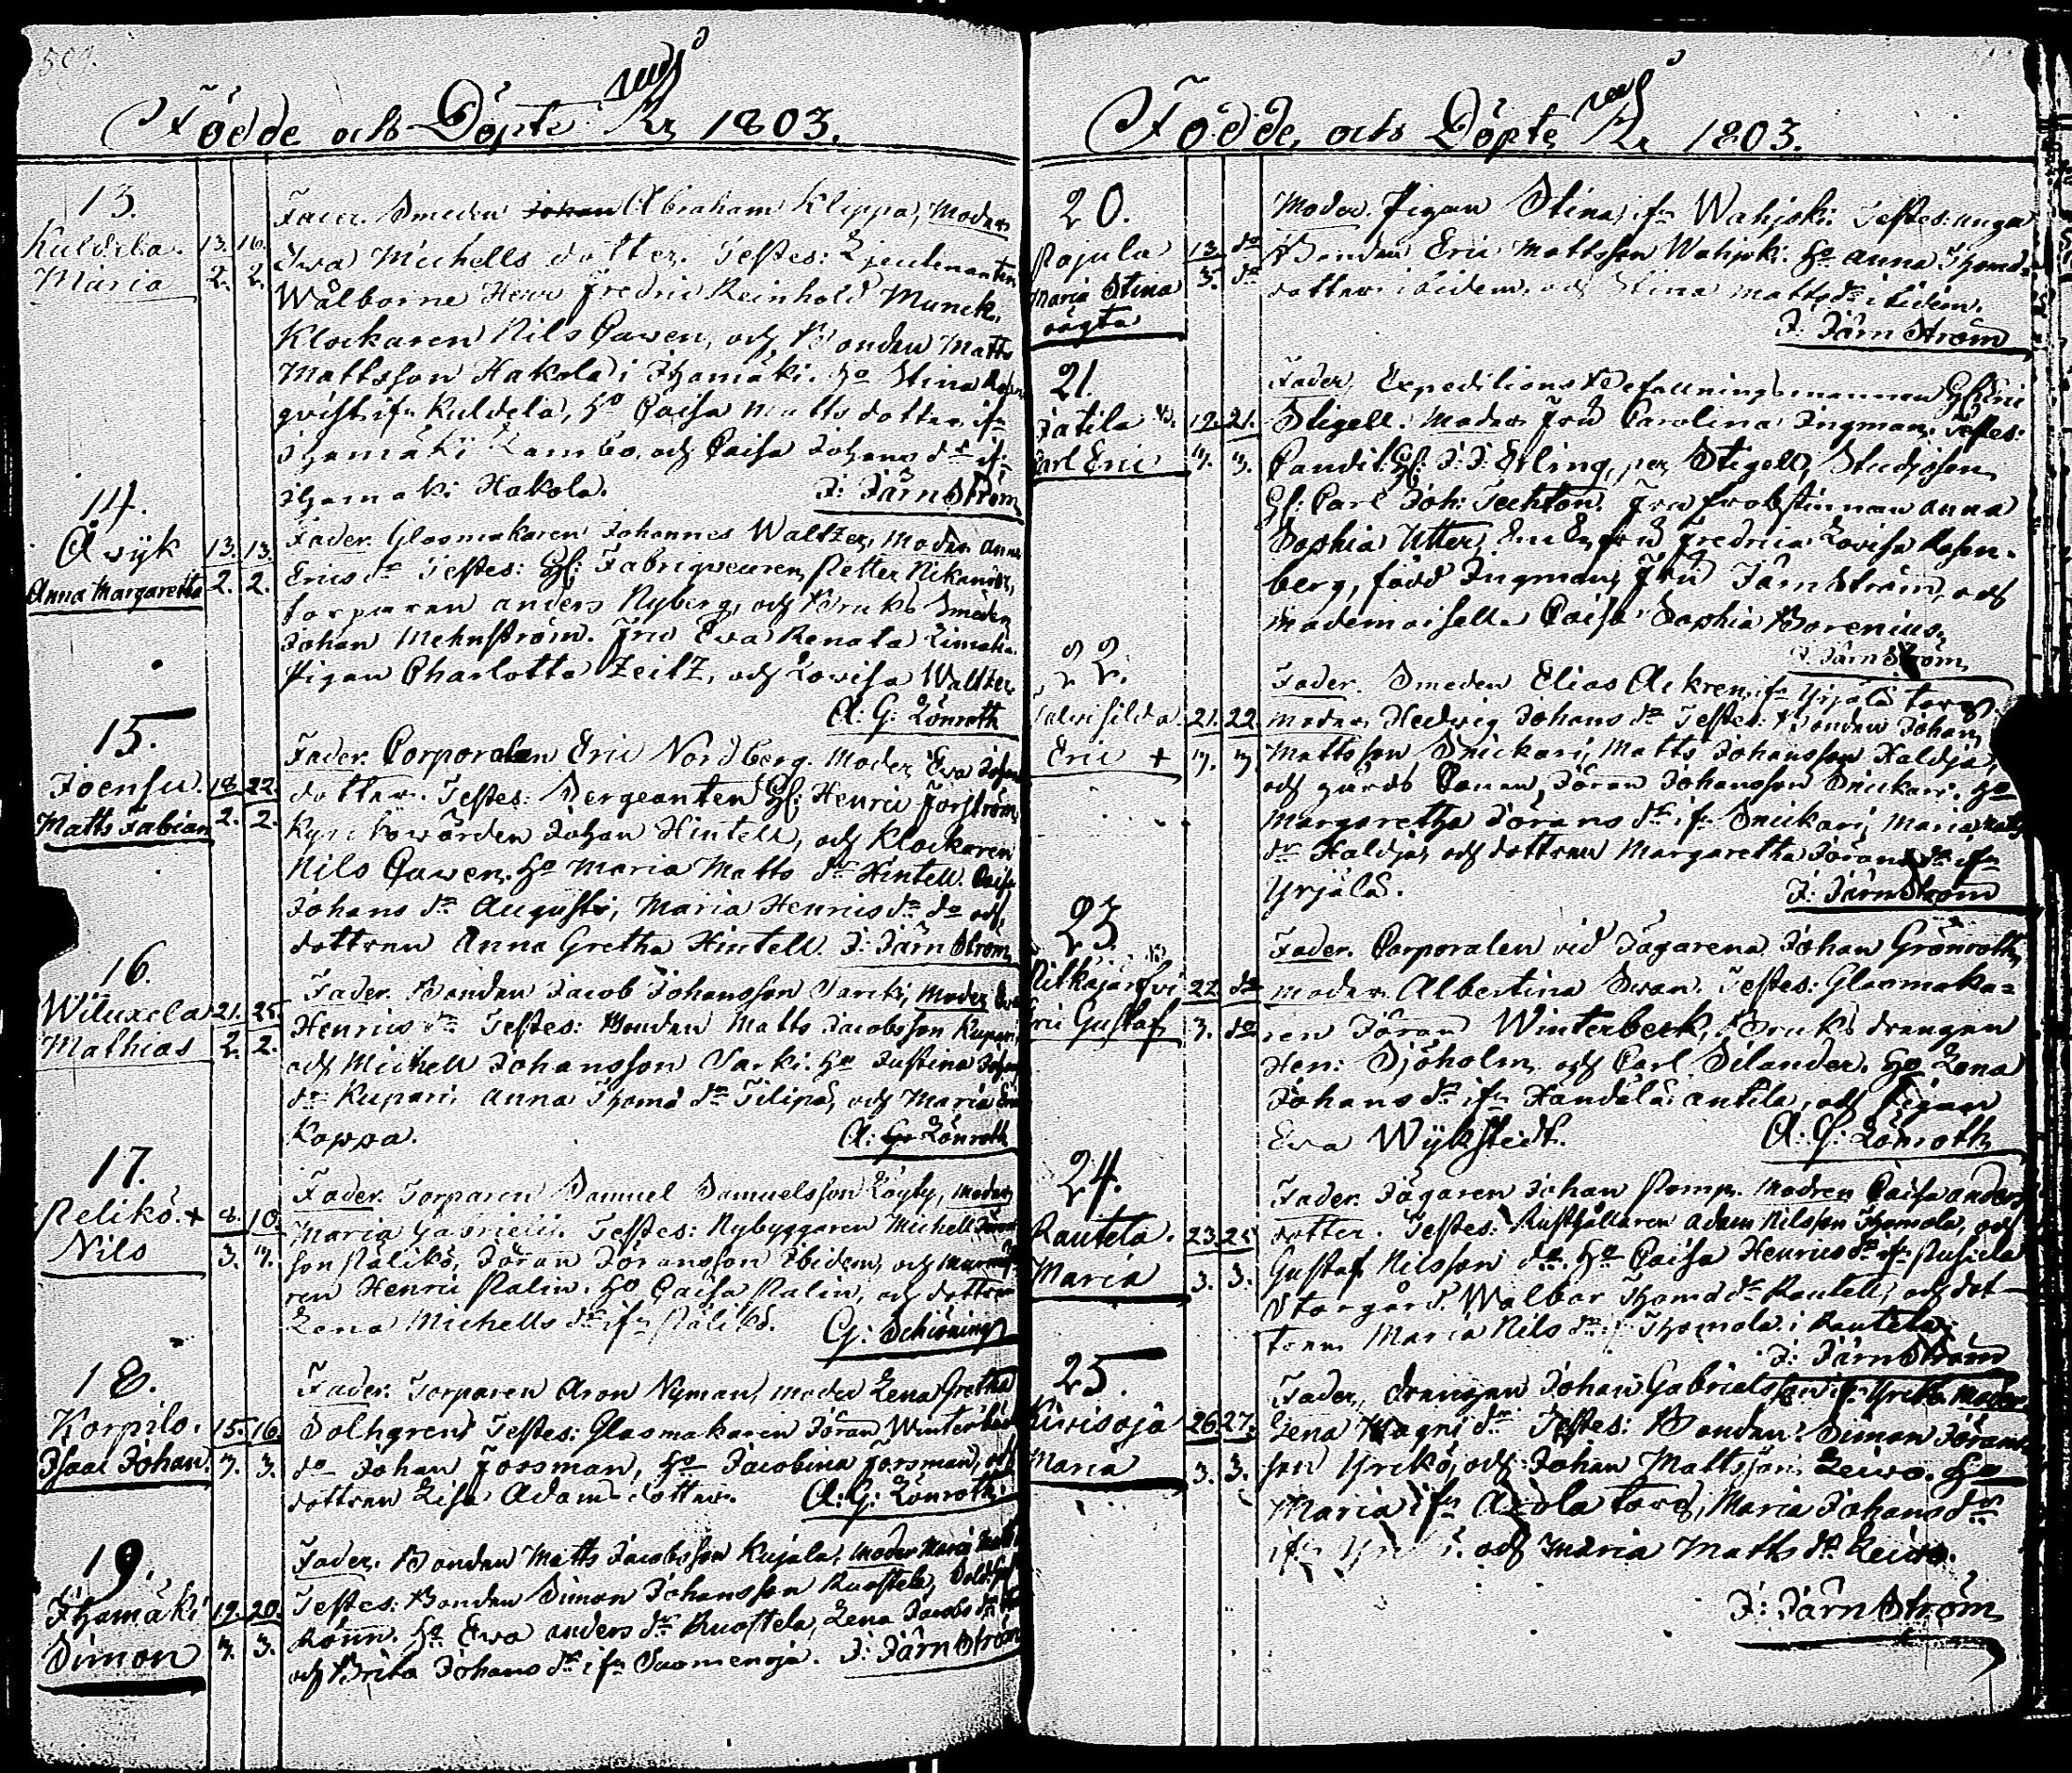 Födde och Döpte År 1803.
13.
Kuldela. 13. 16.
Maria 2. 2.
Fader. Smeden Johan Abraham Klippa, Moder
Ewa Michells dotter. Testes: Lieutenanten
Wälborne Herr Fredric Reinhold Munck,
Klockaren Nils Cawen, och Bonden Matts
Mattsson Hakola i Ihamäki. Ho Stina
qvist ifn Kuldela, Ho Caisa Matts dotter ifn
Ihamäki Lambo, och Caisa Johans dr ifn
Ihamäki Hakola. J: Järnström
14.
Awijk 13. 13.
Anna Margaretha 2. 2.
Fader. Glasmakaren Johannes Waltzer, Moder Anna
Erics dr Testes: Hr: Fabriqueuren Petter Nikander,
torparen Anders Nyberg, och Bruks Smeden
Johan Mehnström. Fru Eva Renata
Pigan Charlotta Zeitz, och Lovisa Waltzer.
A: G: Lönroth
15.
Joensu. 18. 22.
Matts Fabian 2. 2.
Fader. Corporalen Eric Nordberg. Moder Ewa Johans
dotter. Testes: Sergeanten Hr: Henric Forström,
Kyrckowärden Johan Hintell, och Klockaren
Nils Cawen. Ho Maria Matts dr Hintell. Caisa
Johans dr Augusti, Maria Henrics dr do och
dottren Anna Gretha Hintell. J: Järnström
16.
Wiluxela 21. 25.
Mathias 2. 2.
Fader. Bonden Jacob Johansson Sarki, Moder Ewa
Henrics dr Testes: Bonden Matts Jacobsson Kupari,
och Michell Johansson Sarki. Ho Justina Johans
dr Kupari, Anna Thoms dr Filipä, och Maria
Koppa. A: G: Lönroth
17.
Pelikö. + 8. 10.
Nils 3. 3.
Fader. Torparen Samuel Samuelsson Löyty, Moder
Maria Gabriels. Testes: Nybyggaren Michell
son Pälikö, Jöran Jöransson Ibidem, och
ren Henric Palin. Ho Caisa Palin, och dottren
Lena Michells dr ifn Pälikö. G: Schröning
18.
Korpilo. 15. 16.
Isaac Johan 3. 3.
Fader. Torparen Aron Nyman, Moder Lena Gretha
Dolhgren Testes: Glasmakaren Jöran Winterbeck
do Johan Forsman, Ho Jacobina Forsman, och
dottren Lisa Adams dotter. A: G: Lönroth.
19.
Ihamäki 19. 20.
Simon 3. 3.
Fader. Bonden Matts Jacobsson Kujala, Moder Maria
Testes: Bonden Simon Johansson Ruostela,
Rönn. Ho Ewa Anders dr Ruostela, Lena Jacobs dr
och Brita Johans dr ifn Suomenoja. J: Järnström
Födde och Döpte År 1803.
20.
Pajula 13. do
Maria Stina 3. do
oägta
Moder. Pigan Stina ifn Wahjoki. Testes: unga
Bonden Eric Mattsson Wahjoki. Ho Anna Thoms
dotter ibidem, och Stina Matts dr ibidem.
J: Järnström
21.
Jatila 19. 21.
Carl Eric 3. 3.
Fader, Expeditions Befallningsmannen Hr: Eric
Stigell. Moder Fru Carolina Ingman. Testes:
Candit: Hr: J: J: Erling, per Stigell, Studiosen
Hr: Carl Joh: Techton. Fru Probstinnan Anna
Sophia Utter, Enke Fru Fredrica Lovisa Rosen-
berg, född Ingman, Fru Järnström, och
Mademoiselle Caisa Sophia Borenius.
J: Järnström
22.
21. 22.
Eric + 3. 3
Fader. Smeden Elias Ackren, ifn Yrjälä torp.
Moder, Hedwig Johans dr Testes: Bonden Johan
Mattsson Snickari, Matts Johansson Haldja,
och gårds Jöran Johansson Snickari. Ho
Margaretha Jörans dr ifn Snickari, Maria Matts
dr Haldja, och dottren Margaretha Jörans dr ifn
Yrjälä. J: Järnström
23.
Pitkäjärfvi 22. do
Eric Gustaf 3. do
Fader. Corporalen vid Jägarena Johan Grönroth,
Moder Albertina Swan. Testes: Glasmaka=
ren Jöran Winterbeck, Bruks drengen
Hen: Sjöholm, och Carl Silander. Ho Lena
Johans dr ifn Handälä Antila, och Pigan
Eva Wykstedt. A: G: Lönroth
24.
Rautela. 23. 25
Maria 3. 3.
Fader. Jägaren Johan Pomp. Modren Caisa Anders
dotter. Testes: Rusthållaren Adam Nilsson Thomola, och
Gustaf Nilsson do. Ho Caisa Henrics dr ifn
Storgård. Walbor Thoms dr Rautell, och dot-
tren Maria Nils dr Thomola i Rautela.
J: Järnström
25.
Kivisoja 26. 27.
Maria 3. 3.
Fader, drengen Johan Gabrielsson ifn Yrckö. Moder
Lena Magni dr Testes: Bonden Simon Jörans
son Yrckö, och Johan Mattsson Leivo. Ho
Maria ifn Axola torp, Maria Johans dr
ifn och Maria Matts dr Leivo.
J: Järnström